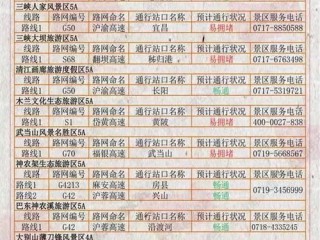 三峡人家风景区5A
线路 路网编号 路网命名 通行站口名称 预计通行状况 景区服务电话
路线1 G50 沪渝高速 宜昌 易拥堵 0717-8850588
三峡大坝旅游区5A
线路 路网编号 路网命名 通行站口名称 预计通行状况 景区服务电话
路线1 S68 翻坝高速 秭归港 易拥堵 0717-6763498
清江画廊旅游度假区5A
线路 路网编号 路网命名 通行站口名称 预计通行状况 景区服务电话
路线1 G50 沪渝高速 长阳 畅通 0717-5319721
木兰文化生态旅游区5A
线路 路网编号 路网命名 通行站口名称 预计通行状况 景区服务电话
路线1 S1 岱黄高速 黄陂 易拥堵 400-0027-838
武当山风景名胜区5A
线路 路网编号 路网命名 通行站口名称 预计通行状况 景区服务电话
路线1 G70 福银高速 武当山 易拥堵 0719-5668567
神农架生态旅游区5A
线路 路网编号 路网命名 通行站口名称 预计通行状况 景区服务电话
路线1 G4213 麻安高速 房县 畅通 0719-3456999
路线2 G42 沪蓉高速 兴山 畅通
巴东神农溪旅游区5A
线路 路网编号 路网命名 通行站口名称 预计通行状况 景区服务电话
路线1 G42 沪蓉高速 沿渡河 畅通 0718-4335245
大别山薄刀锋风景区4A